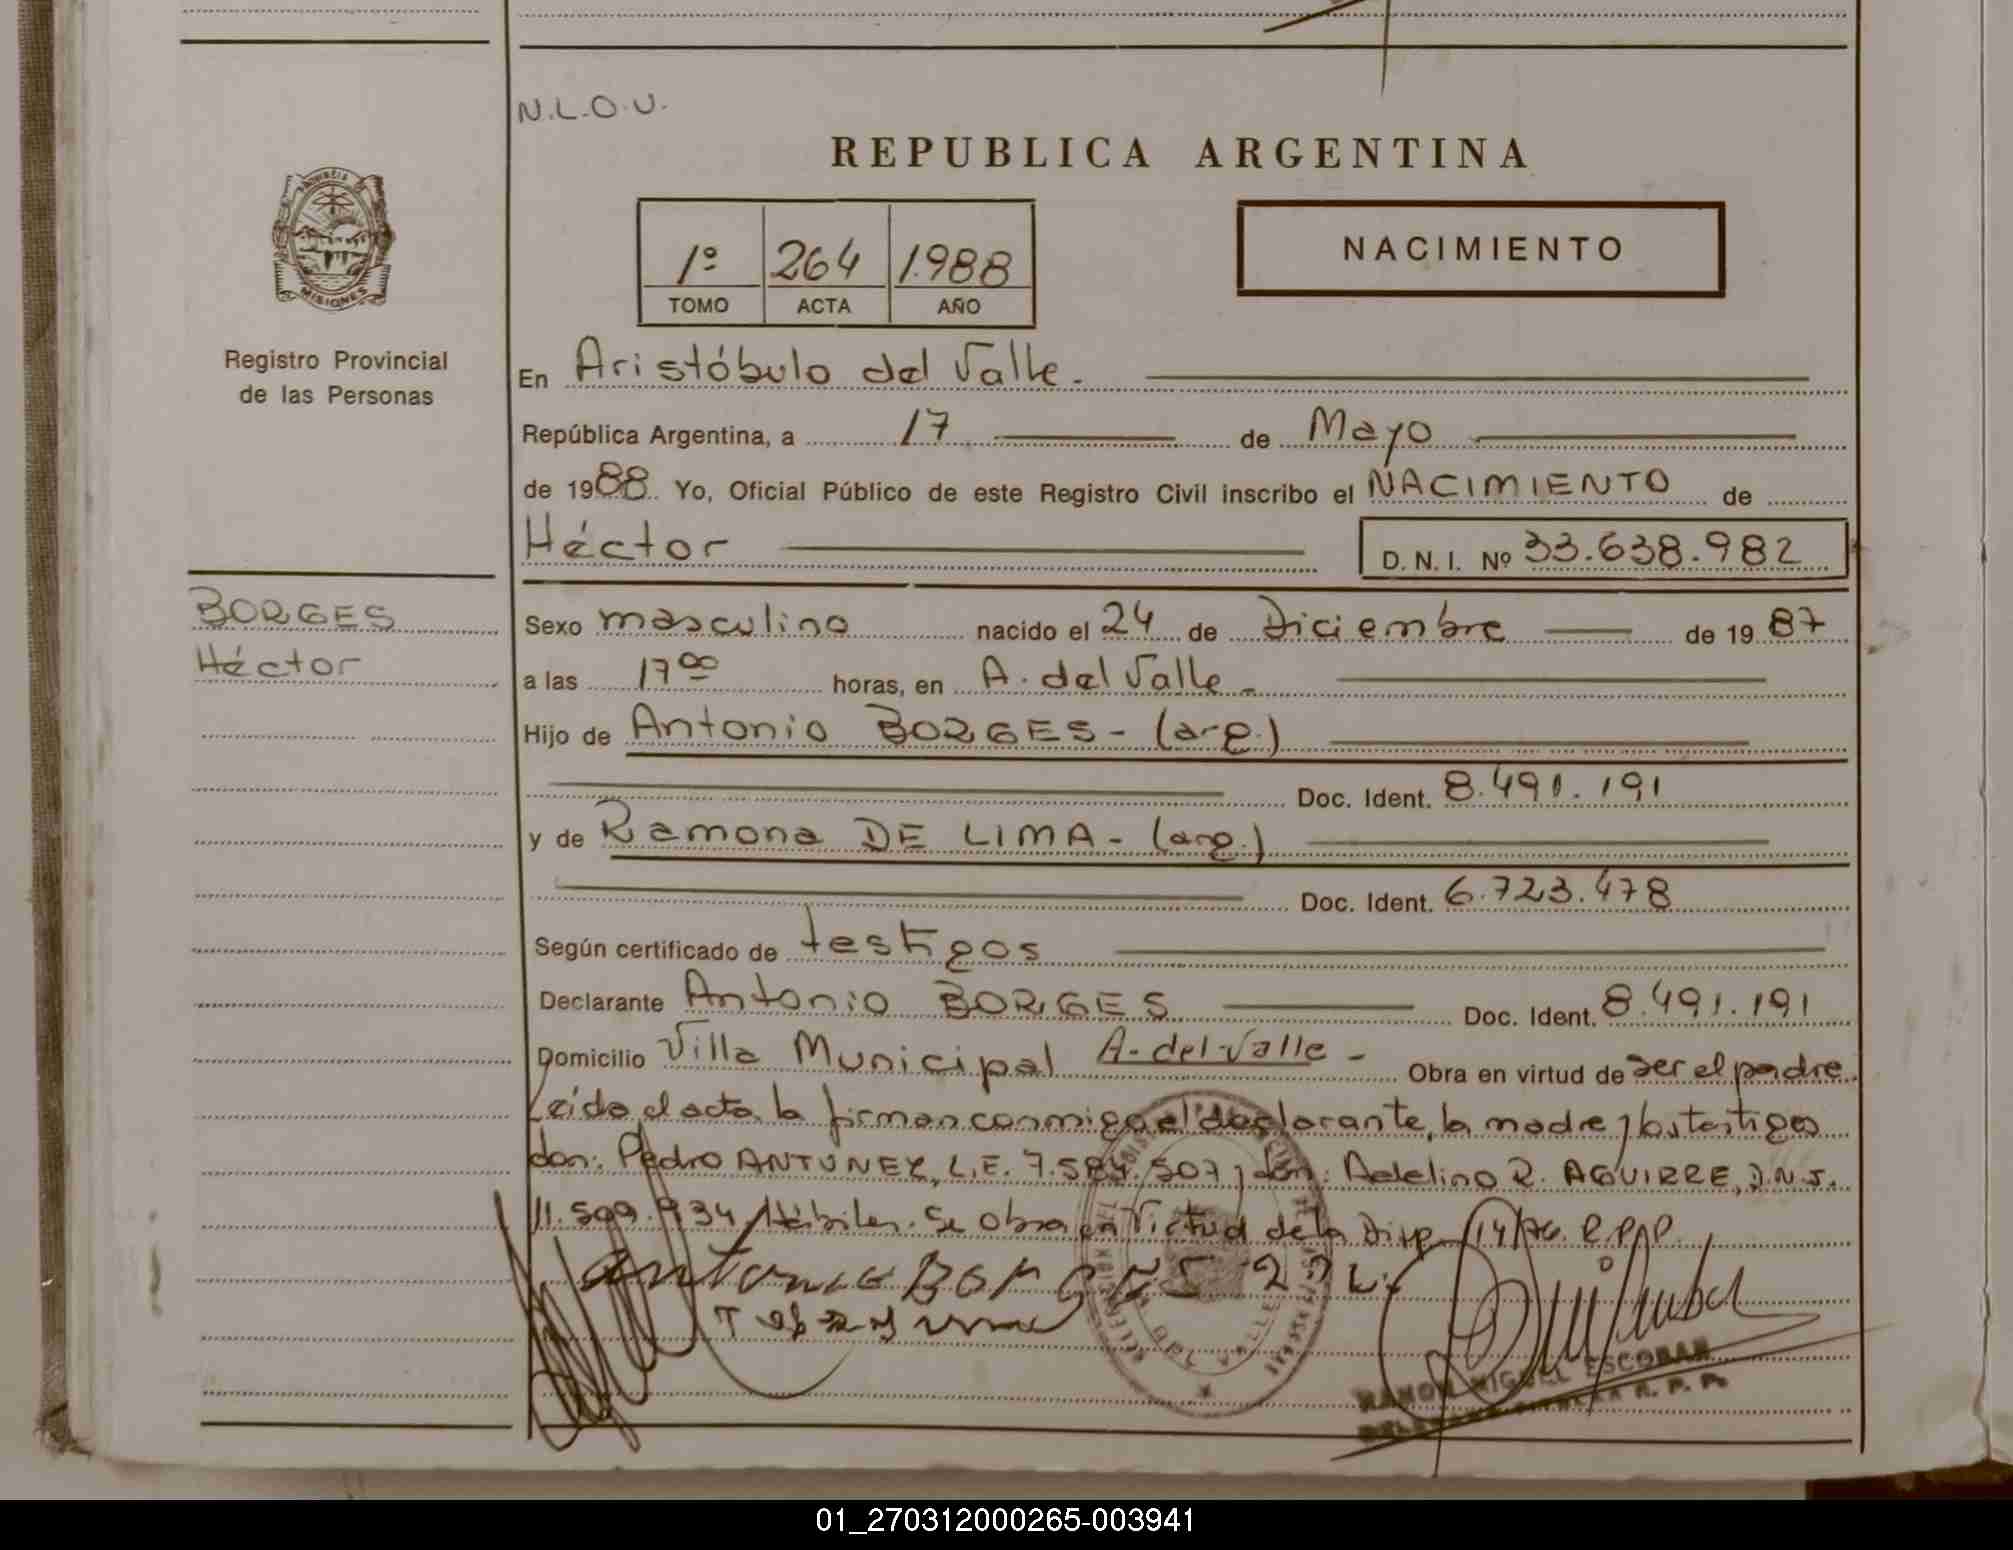 N.L.O.U.
REPUBLICA ARGENTINA
1º 264 1.988
TOMO ACTA AÑO
NACIMIENTO
MISIONES
Registro Provincial
de las Personas
En Aristóbulo del Valle.
República Argentina, a 17 de Mayo
de 1988. Yo, Oficial Público de este Registro Civil inscribo el NACIMIENTO de
Héctor
D. N. I. Nº 33.638.982
BORGES
Héctor
Sexo masculino nacido el 24 de Diciembre de 1987
a las 17 00 horas, en A. del Valle -
Hijo de Antonio BORGES - (arg.)
Doc. Ident. 8.491.191
y de Ramona DE LIMA - (arg.)
Doc. Ident. 6.723.478
Según certificado de testigos
Declarante Antonio BORGES Doc. Ident. 8.491.191
Domicilio Villa Municipal A. del Valle - Obra en virtud de ser el padre.
Leída el acta la firman conmigo el declarante, la madre y los testigos
don: Pedro ANTUNEZ, L.E. 7.584.507 y don: Adelino R. AGUIRRE, D.N.I.
11.599.934 Hábiles. Se obra en Virtud de la Disp. 14/76 R.P.P.
Antonio Borges
RAMON MIGUEL ESCOBAR
R. P. P.
01_270312000265-003941